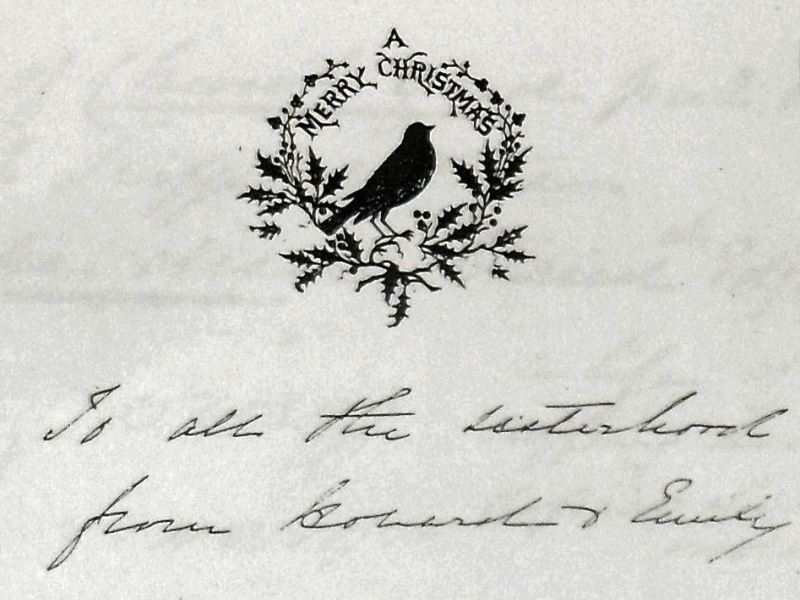 A
MERRY CHRISTMAS
To all the sisterhood
from & Emily